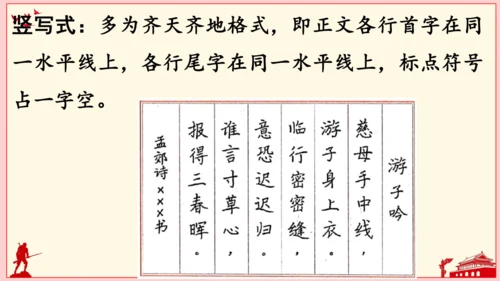 竖写式：多为齐天齐地格式，即正文各行首字在同
一水平线上，各行尾字在同一水平线上，标点符号
占一字空。
游子吟
慈母手中线，
游子身上衣。
临行密密缝，
意恐迟迟归。
谁言寸草心，
报得三春晖。
孟郊诗×××书